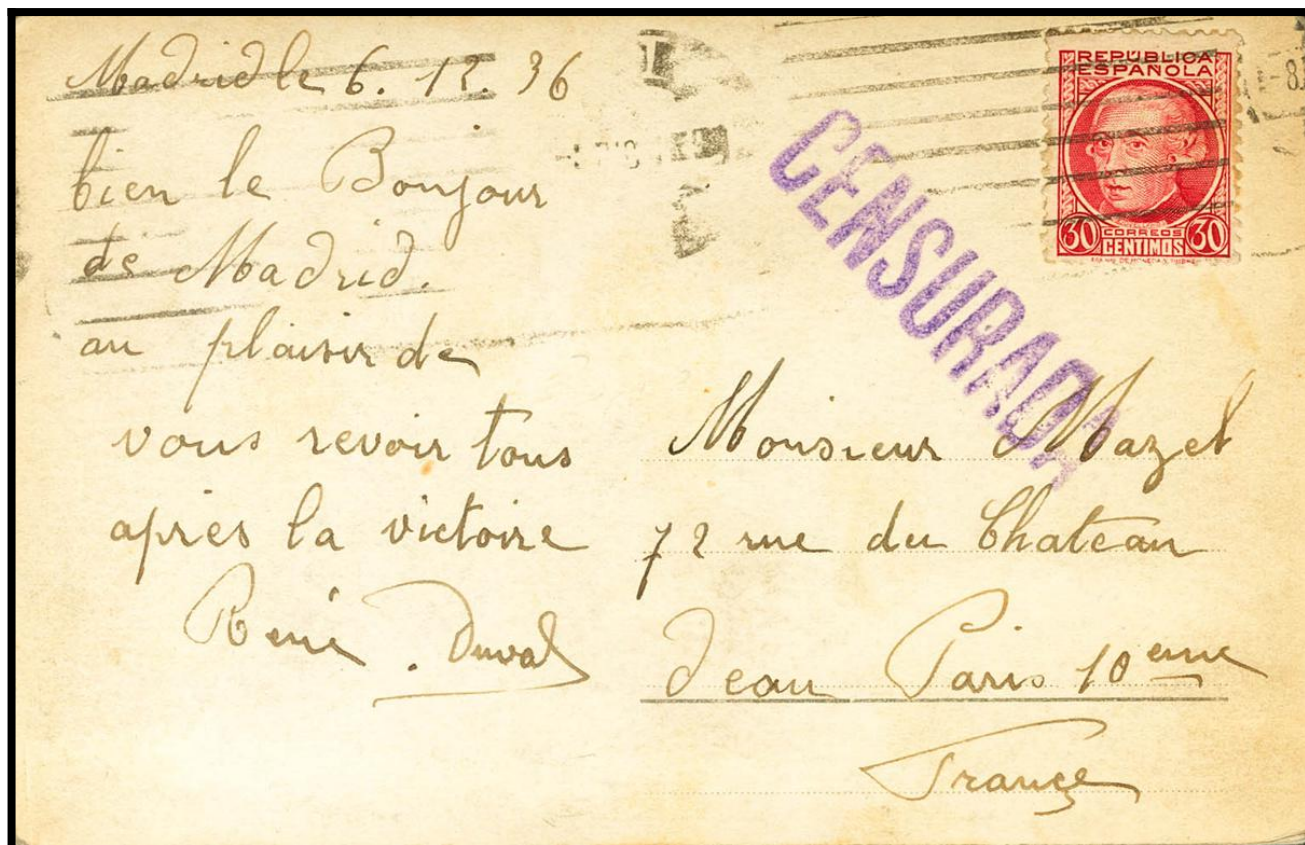 Madrid le 6. 12. 36
bien le Bonjour
de Madrid.
au plaisir de
vous revoir tous
après la victoire
René Duval
CENSURADA
REPÚBLICA
ESPAÑOLA
30 CORREOS 30
CENTIMOS
Monsieur Mazet
72 rue du Chateau
d'eau Paris 10eme
France